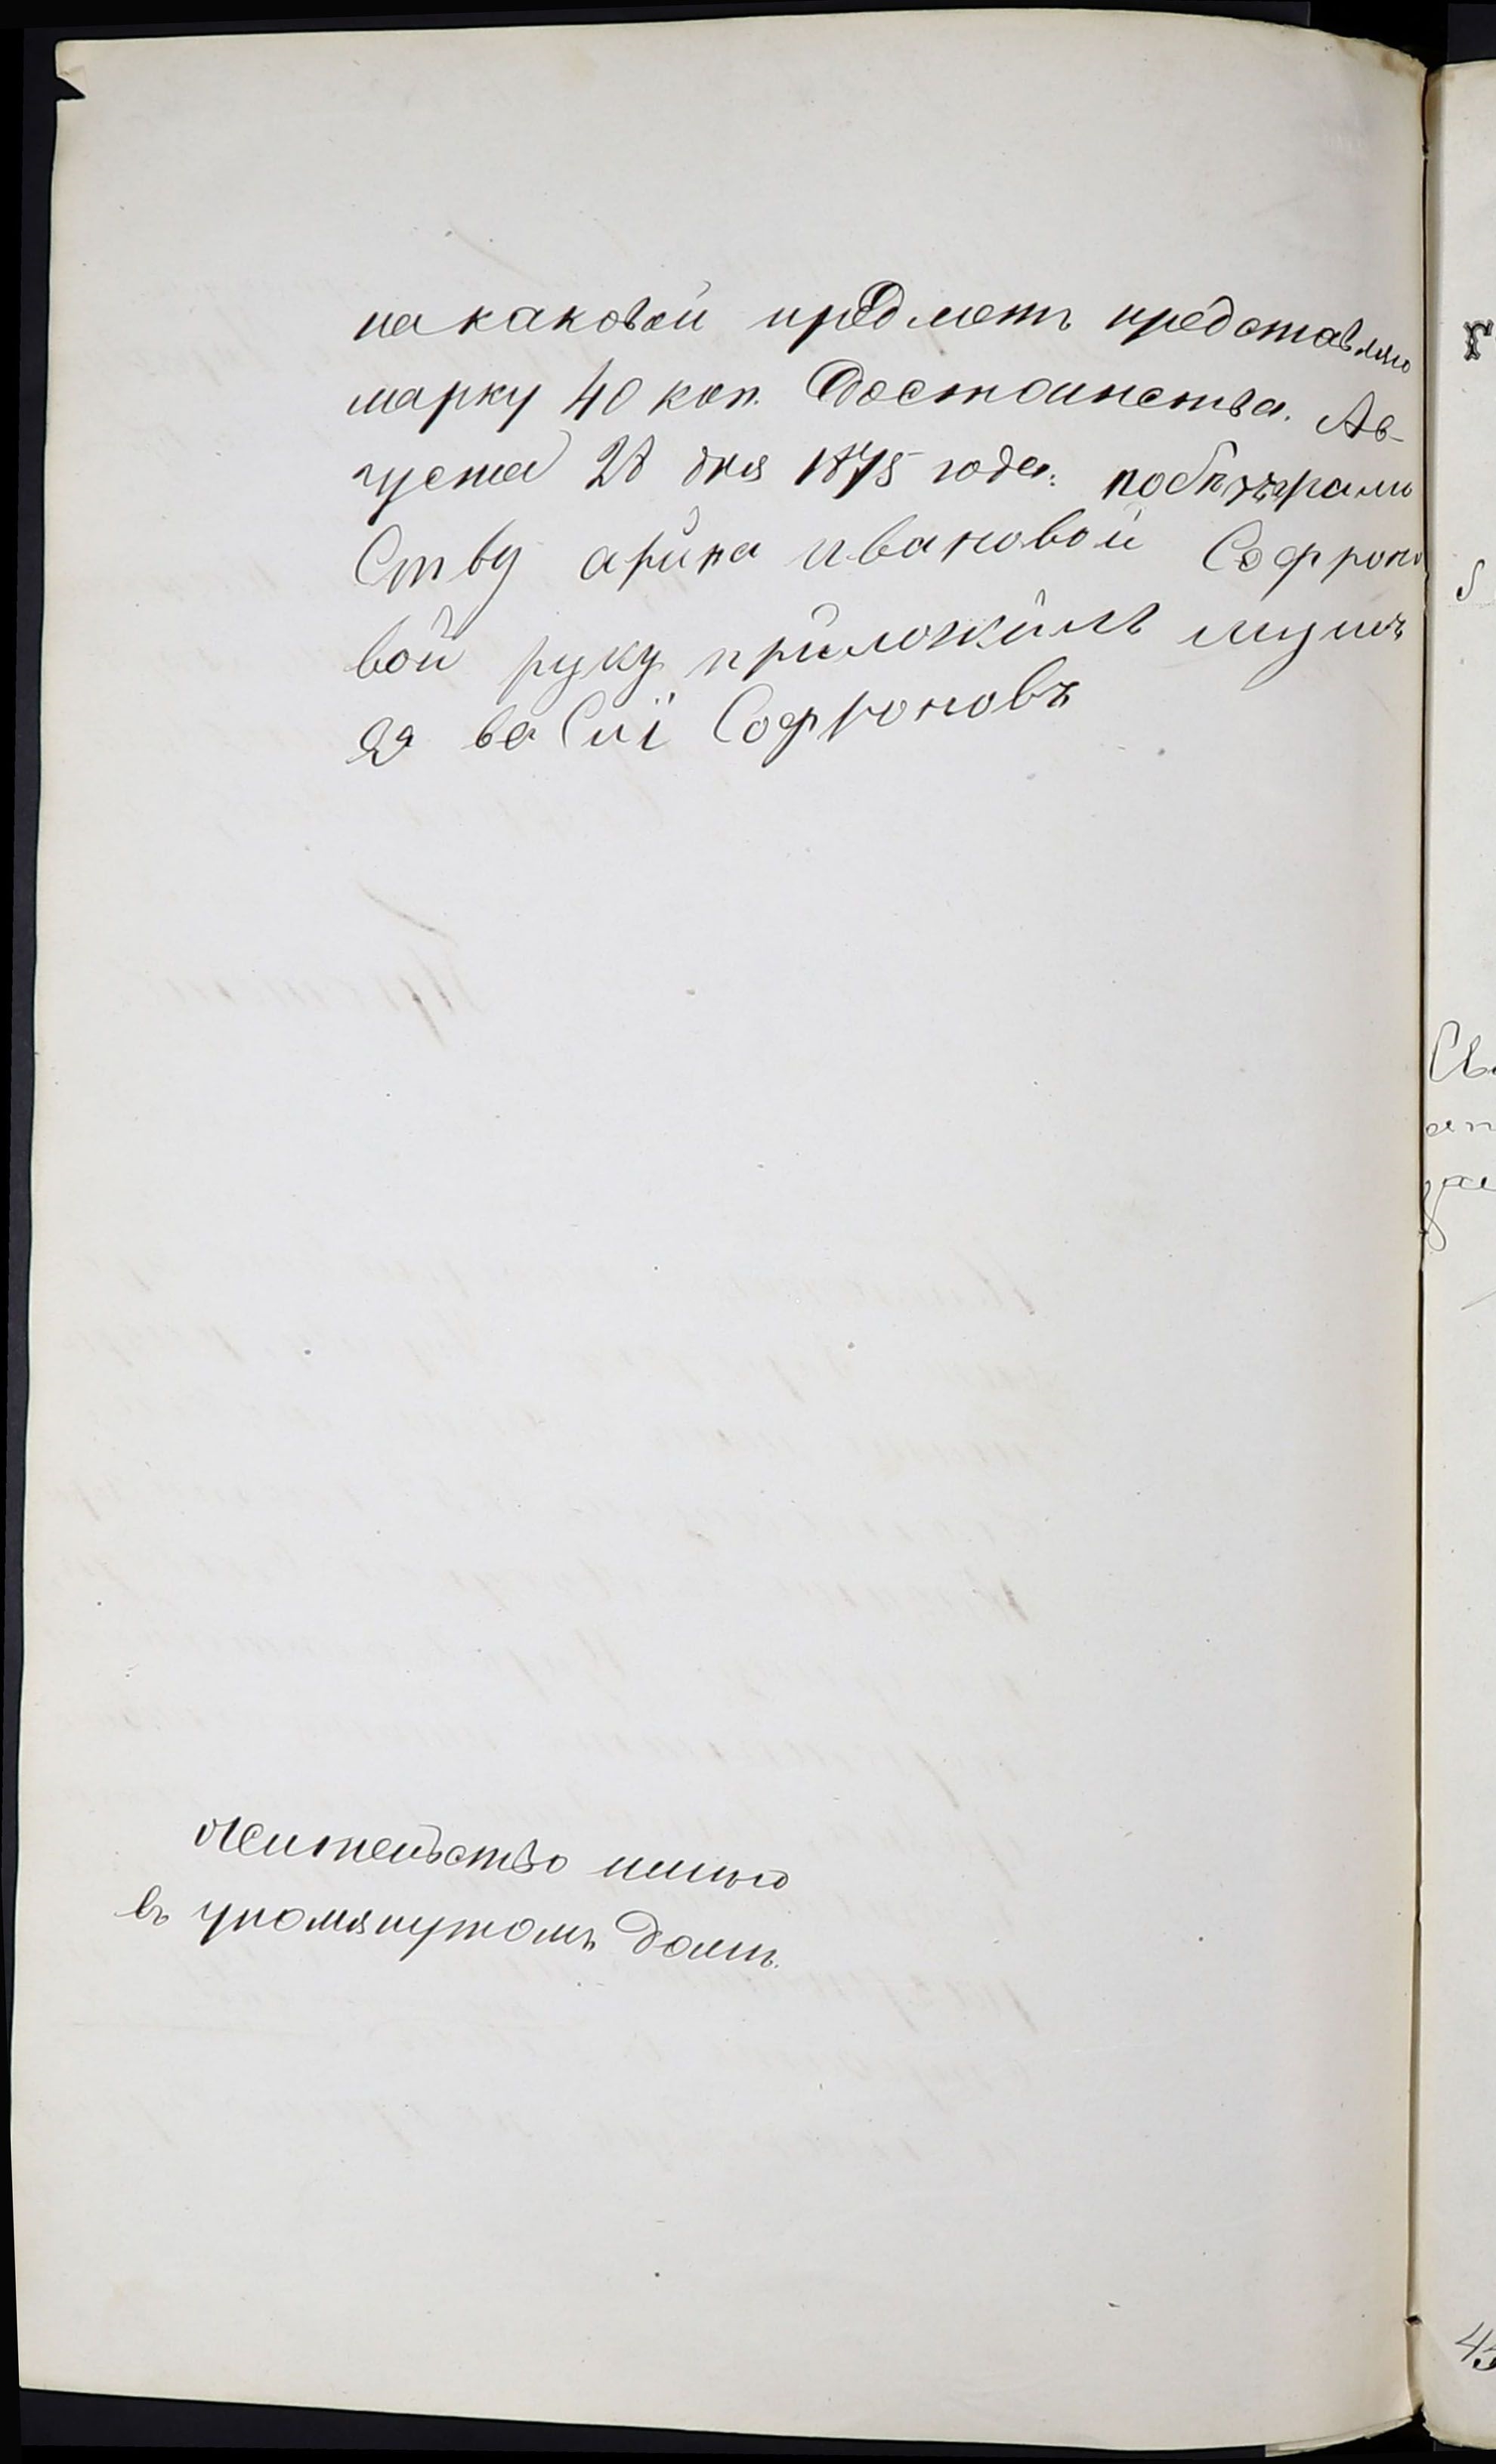 на каковой предметъ представляю
марку 40 коп. достоинства. Ав-
густа 28 дня 1875 года. побезграмо
Ству арина ивановой Софроно
вой руку приложилъ мужъ
Ея васиі Софроновъ
Жительство имѣю
въ упомянутомъ домѣ.